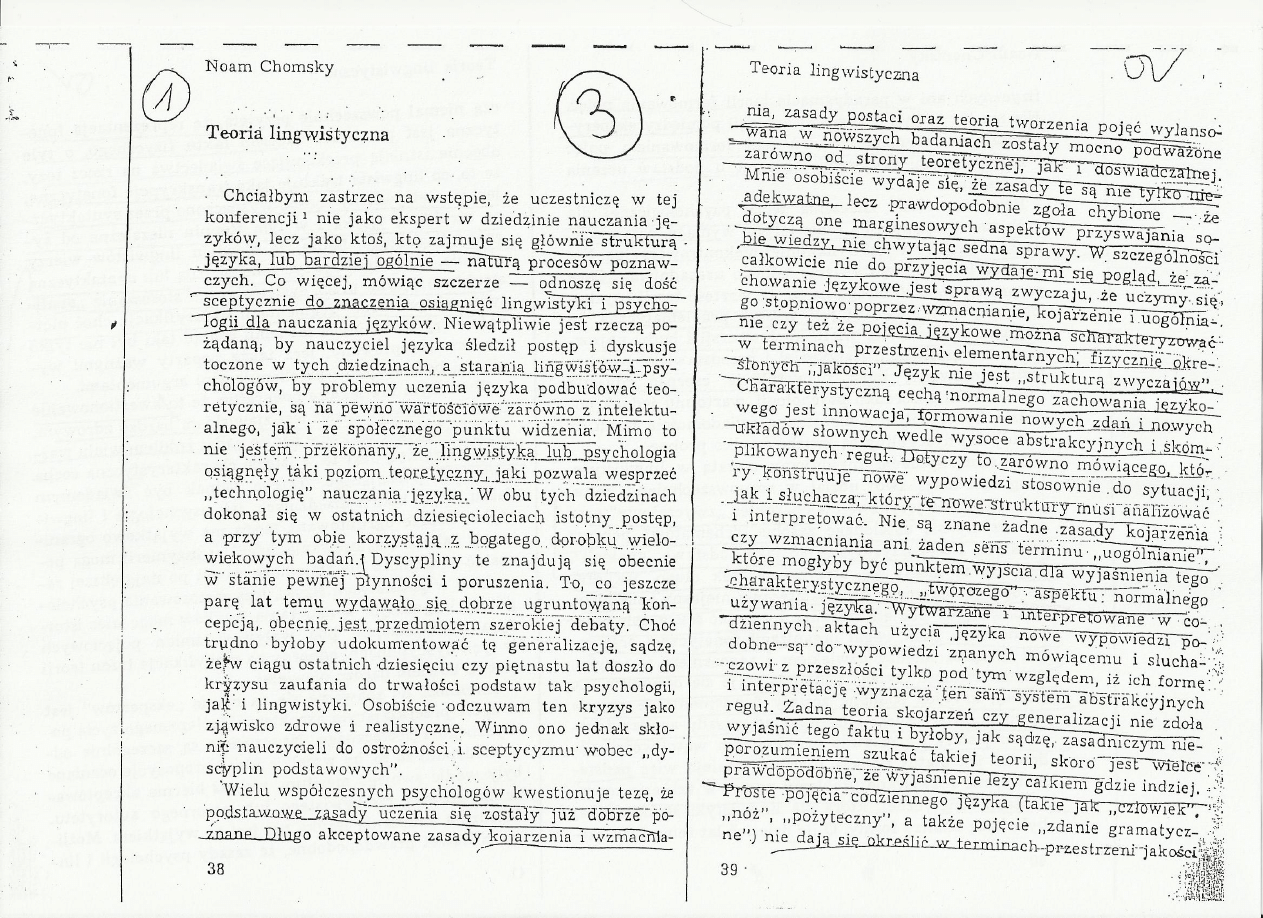 Noam Chomsky
1
3
Teoria lingwistyczna
Chciałbym zastrzec na wstępie, że uczestniczę w tej
konferencji¹ nie jako ekspert w dziedzinie nauczania ję-
zyków, lecz jako ktoś, kto zajmuje się głównie strukturą
języka, lub bardziej ogólnie — naturą procesów poznaw-
czych. Co więcej, mówiąc szczerze — odnoszę się dość
sceptycznie do znaczenia osiągnięć lingwistyki i psycho-
logii dla nauczania języków. Niewątpliwie jest rzeczą po-
żądaną, by nauczyciel języka śledził postęp i dyskusje
toczone w tych dziedzinach, a starania lingwistów i psy-
chologów, by problemy uczenia języka podbudować teo-
retycznie, są na pewno wartościowe zarówno z intelektu-
alnego, jak i ze społecznego punktu widzenia. Mimo to
nie jestem przekonany, że lingwistyka lub psychologia
osiągnęły taki poziom teoretyczny, jaki pozwala wesprzeć
„technologię” nauczania języka. W obu tych dziedzinach
dokonał się w ostatnich dziesięcioleciach istotny postęp,
a przy tym obie korzystają z bogatego dorobku wielo-
wiekowych badań. Dyscypliny te znajdują się obecnie
w stanie pewnej płynności i poruszenia. To, co jeszcze
parę lat temu wydawało się dobrze ugruntowaną kon-
cepcją, obecnie jest przedmiotem szerokiej debaty. Choć
trudno byłoby udokumentować tę generalizację, sądzę,
że w ciągu ostatnich dziesięciu czy piętnastu lat doszło do
kryzysu zaufania do trwałości podstaw tak psychologii,
jak i lingwistyki. Osobiście odczuwam ten kryzys jako
zjawisko zdrowe i realistyczne. Winno ono jednak skło-
nić nauczycieli do ostrożności i sceptycyzmu wobec „dy-
scyplin podstawowych”.
Wielu współczesnych psychologów kwestionuje tezę, że
podstawowe zasady uczenia się zostały już dobrze po-
znane. Długo akceptowane zasady kojarzenia i wzmacnia-
38
Teoria lingwistyczna
nia, zasady postaci oraz teoria tworzenia pojęć wylanso-
wana w nowszych badaniach zostały mocno podważone
zarówno od strony teoretycznej, jak i doświadczalnej.
Mnie osobiście wydaje się, że zasady te są nie tylko nie-
adekwatne, lecz prawdopodobnie zgoła chybione — że
dotyczą one marginesowych aspektów przyswajania so-
bie wiedzy, nie chwytając sedna sprawy. W szczególności
całkowicie nie do przyjęcia wydaje mi się pogląd, że za-
chowanie językowe jest sprawą zwyczaju, że uczymy się
go stopniowo poprzez wzmacnianie, kojarzenie i uogólnia-
nie czy też że pojęcia językowe można scharakteryzować
w terminach przestrzeni elementarnych, fizycznie okre-
ślonych „jakości”. Język nie jest „strukturą zwyczajów”.
Charakterystyczną cechą normalnego zachowania języko-
wego jest innowacja, formowanie nowych zdań i nowych
układów słownych wedle wysoce abstrakcyjnych i skom-
plikowanych reguł. Dotyczy to zarówno mówiącego, któ-
ry konstruuje nowe wypowiedzi stosownie do sytuacji,
jak i słuchacza, który te nowe struktury musi analizować
i interpretować. Nie są znane żadne zasady kojarzenia
czy wzmacniania ani żaden sens terminu „uogólnianie”,
które mogłyby być punktem wyjścia dla wyjaśnienia tego
charakterystycznego, „twórczego” aspektu normalnego
używania języka. Wytwarzane i interpretowane w co-
dziennych aktach użycia języka nowe wypowiedzi po-
dobne są do wypowiedzi znanych mówiącemu i słucha-
czowi z przeszłości tylko pod tym względem, iż ich formę
i interpretację wyznacza ten sam system abstrakcyjnych
reguł. Żadna teoria skojarzeń czy generalizacji nie zdoła
wyjaśnić tego faktu i byłoby, jak sądzę, zasadniczym nie-
porozumieniem szukać takiej teorii, skoro jest wielce
prawdopodobne, że wyjaśnienie leży całkiem gdzie indziej.
Proste pojęcia codziennego języka (takie jak „człowiek”,
„nóż”, „pożyteczny”, a także pojęcie „zdanie gramatycz-
ne”) nie dają się określić w terminach przestrzeni jakości
39